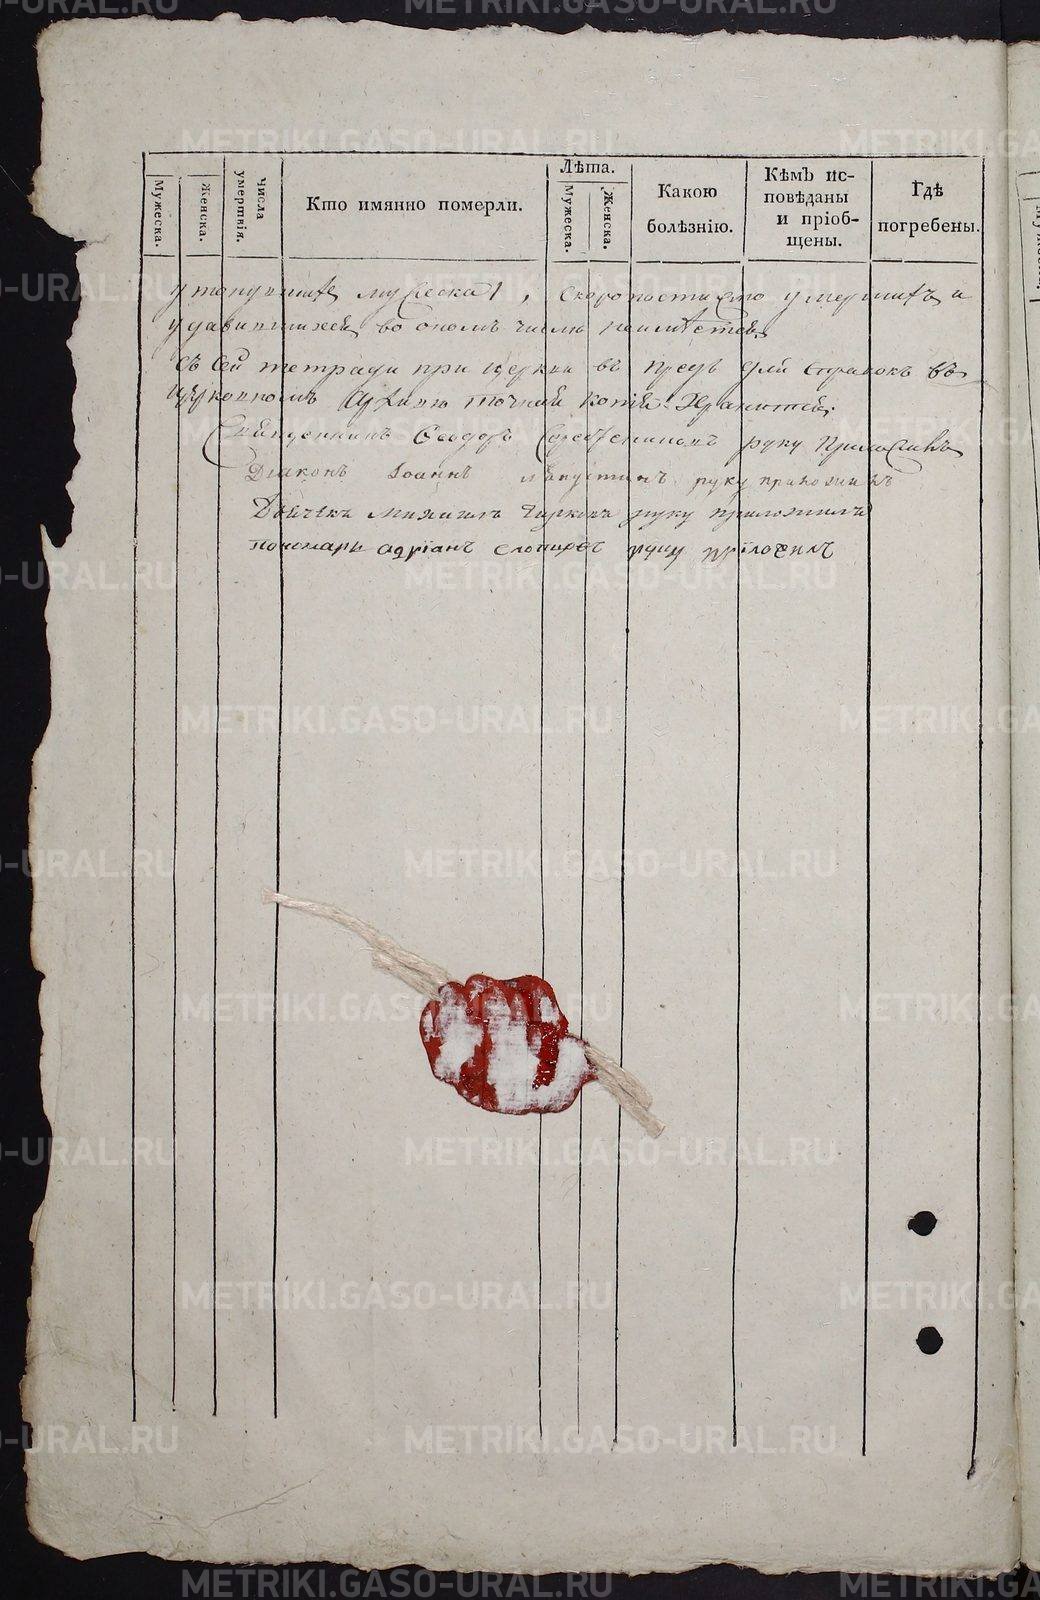 Мужеска.
Женска.
Числа умертвія.
Кто имянно померли.
Лѣта.
Мужеска.
Женска.
Какою
болѣзнію.
Кѣмъ ис-
повѣданы
и пріоб-
щены.
Гдѣ
погребены.
утонувшихъ мужеска 1, скоропостижно умершихъ и
удавившихся во ономъ числѣ неимѣется
съ сей тетради при церкви въ предь для справокъ въ
церковномъ Архивѣ точная копія хранится.
Священникъ Ѳеодоръ руку приложилъ
Діаконъ Іоаннъ руку приложилъ
Дьячекъ Михаилъ руку приложилъ
Пономарь адріанъ руку приложилъ
METRIKI.GASO-URAL.RU